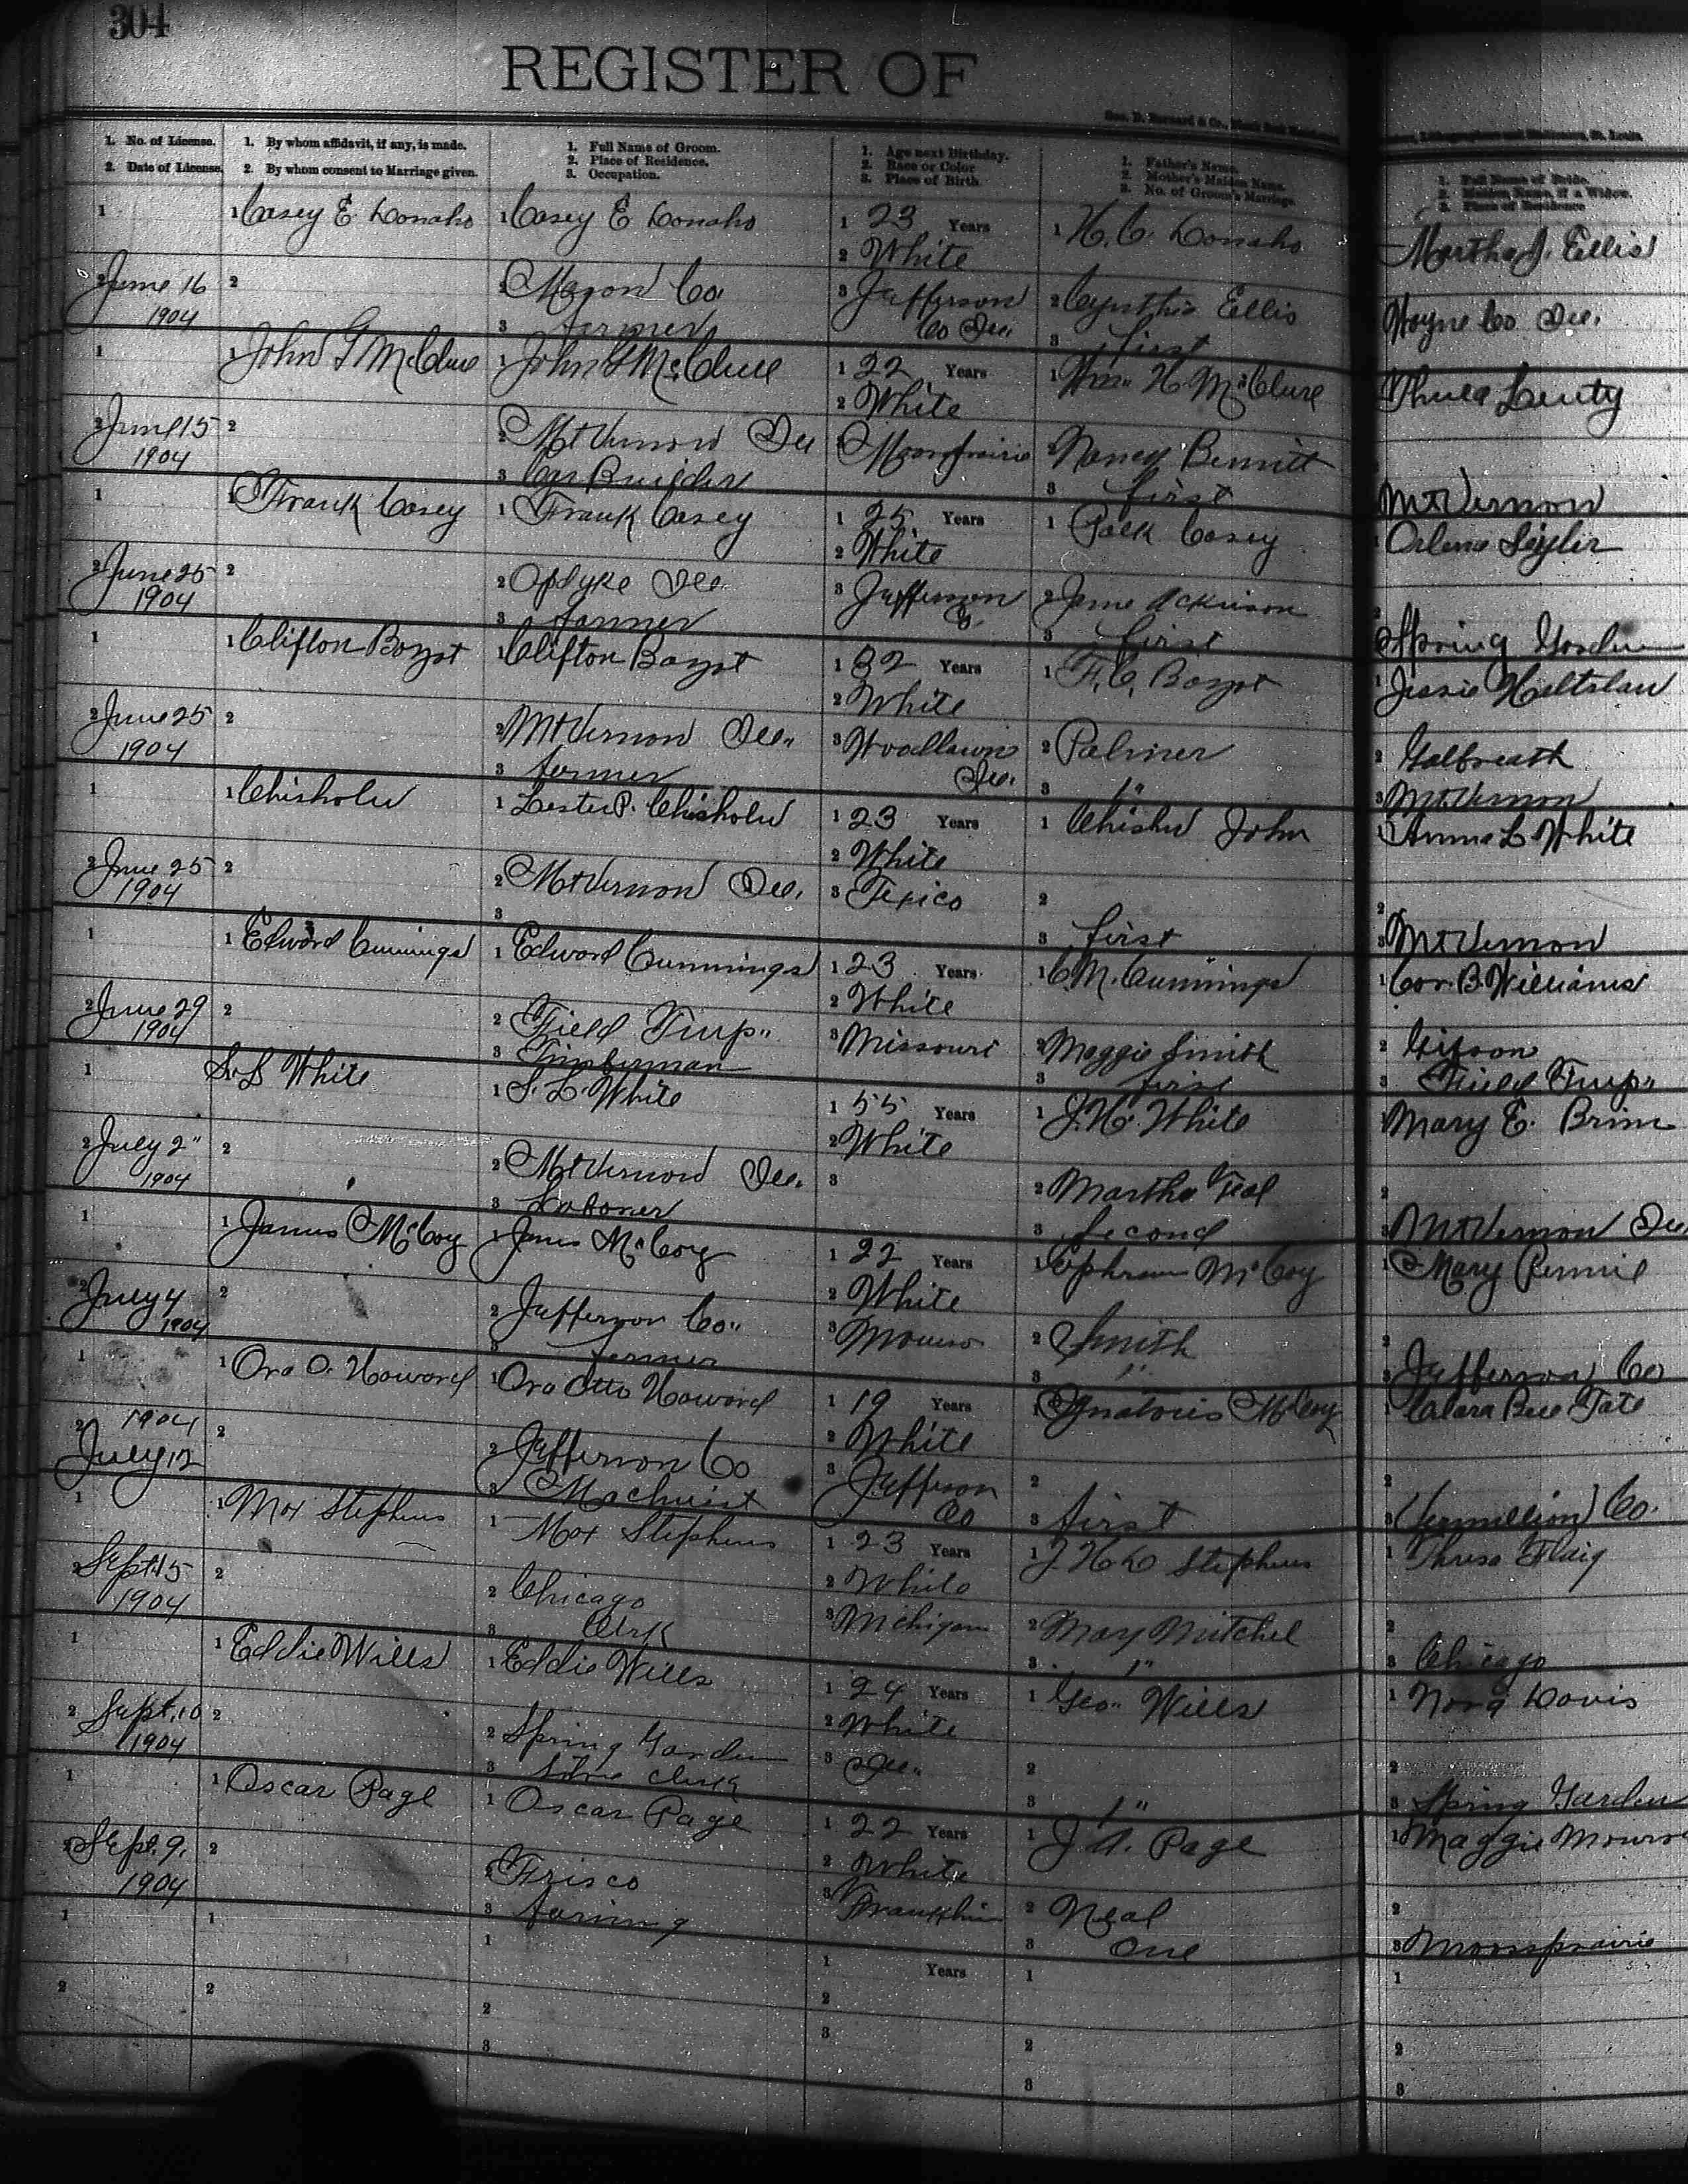 304
REGISTER OF
1. No. of License.
2. Date of License.
1. By whom affidavit, if any, is made.
2. By whom consent to Marriage given.
1. Full Name of Groom.
2. Place of Residence.
3. Occupation.
1. Age next Birthday.
2. Race or Color
3. Place of Birth.
1. Father's Name.
2. Mother's Maiden Name.
3. No. of Groom's Marriage.
1. Full Name of Bride.
2. Maiden Name, if a Widow.
3. Place of Residence
1
2 June 16
1904
1 Casey E. Donaho
2
1 Casey E Donaho
2 Co
3 farmer
1 23 Years
2 White
3 Jefferson
Co Ill.
1 H. C. Donaho
2 Cynthia Ellis
3 first
Martha J. Ellis
Wayne Co Ill.
1
2 June 15
1904
1 John G McClure
2
1 John G McClure
2 Mt Vernon Ill
3 Car Builder
1 22 Years
2 White
3 Mooresprairie
1 Wm. H. McClure
2 Nancy Bennitt
3 first
Lenty
Mt Vernon
1
2 June 25
1904
1 Frank Casey
2
1 Frank Casey
2 Opdyke Ill.
3 farmer
1 25 Years
2 White
3 Jefferson
Co.
1 Polk Casey
2 Jane Ackinson
3 first
1 Orlena
2
3 Spring Garden
1
2 June 25
1904
1 Clifton
2
1 Clifton
2 Mt Vernon Ill.
3 farmer
1 32 Years
2 White
3 Woodlawn
Ill.
1 F. C.
2 Palmer
3 1"
1 Jessie
2 Galbreath
3 Mt Vernon
1
2 June 25
1904
1 Chisholm
2
1 Lester P. Chisholm
2 Mt Vernon Ill.
3
1 23 Years
2 White
3 Texico
1 John
2
3 first
1 Anna L White
2
3 Mt Vernon
1
2 June 29
1904
1 Edward Cummings
2
1 Edward Cummings
2 Field Twp"
3 Timberman
1 23 Years
2 White
3 Missouri
1 C. M. Cummings
2 Maggie Smith
3 first
1 B. Williams
2 Gipson
3 Field Twp"
1
2 July 2"
1904
S. L White
2
1 S. L. White
2 Mt Vernon Ill.
3 Laborer
1 55 Years
2 White
3
1 J. H. White
2 Martha Teal
3 Second
1 Mary E. Brim
2
3 Mt Vernon Ill
1
2 July 4
1904
1 James McCoy
2
1 James McCoy
2 Jefferson Co"
3 farmer
1 22 Years
2 White
3
1 Ephram McCoy
2 Smith
3 1"
1 Mary
2
3 Jefferson Co
1
1904
2 July 12
1 Ora O. Howard
2
1 Ora Otto Howard
2 Jefferson Co
3 Machinist
1 19 Years
2 White
3 Jefferson
Co
1 McCoy
2
3 first
1 Clara Bell Tate
2
3 Vermillion Co.
1
2 Sept 15
1904
1 Max Stephens
2
1 Max Stephens
2 Chicago
3 Clrk
1 23 Years
2 White
3 Michigan
1 J. H. D Stephens
2 May Mitchel
3 1"
1 Thresa Flaig
2
3 Chicago
1
2 Sept. 10
1904
1 Eddie Wills
2
1 Eddie Wills
2 Spring Garden
3 clerk
1 24 Years
2 White
3 Ill.
1 Geo. Wills
2
3 1"
1 Nora Davis
2
3 Spring Garden
1
2 Sept. 9,
1904
1 Oscar Page
2
1 Oscar Page
2 Frisco
3 farming
1 22 Years
2 White
3 Franklin
1 J. A. Page
2 Neal
3 One
1 Maggie
2
3 Mooresprairie
1
2
1
2
1
2
3
1 Years
2
3
1
2
3
1
2
3